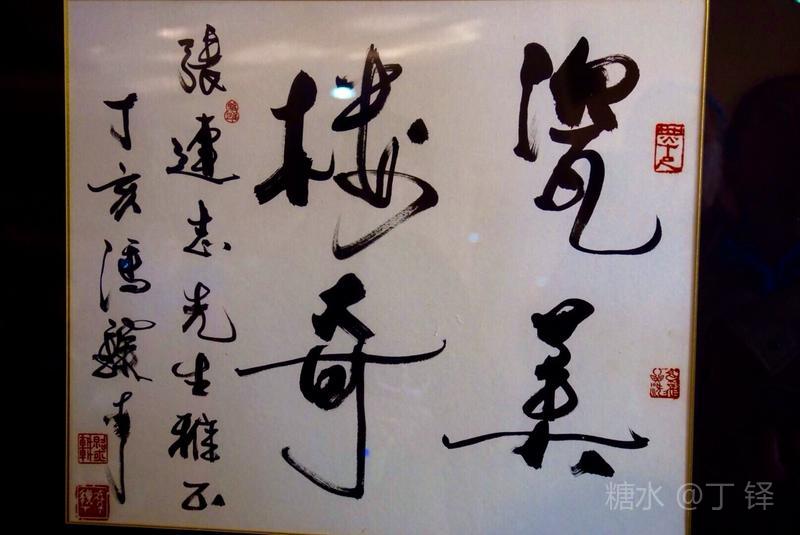 瓷美
楼奇
張連志先生雅正
丁亥馮驥才
糖水 @丁 铎